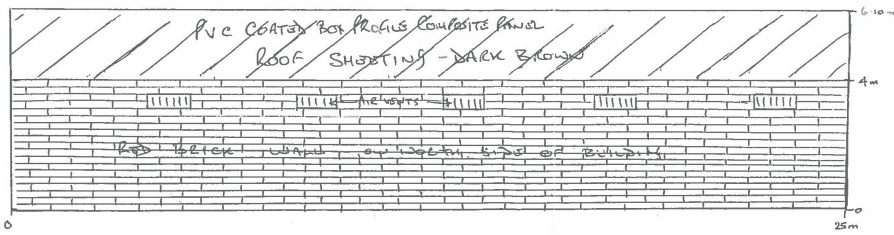 PVC COATED BOX PROFILE COMPOSITE PANEL
6.10 m
ROOF SHEETING - DARK BROWN
4m
AIR VENTS
RED BRICK WALL ON NORTH SIDE OF BUILDING
0
0
25m